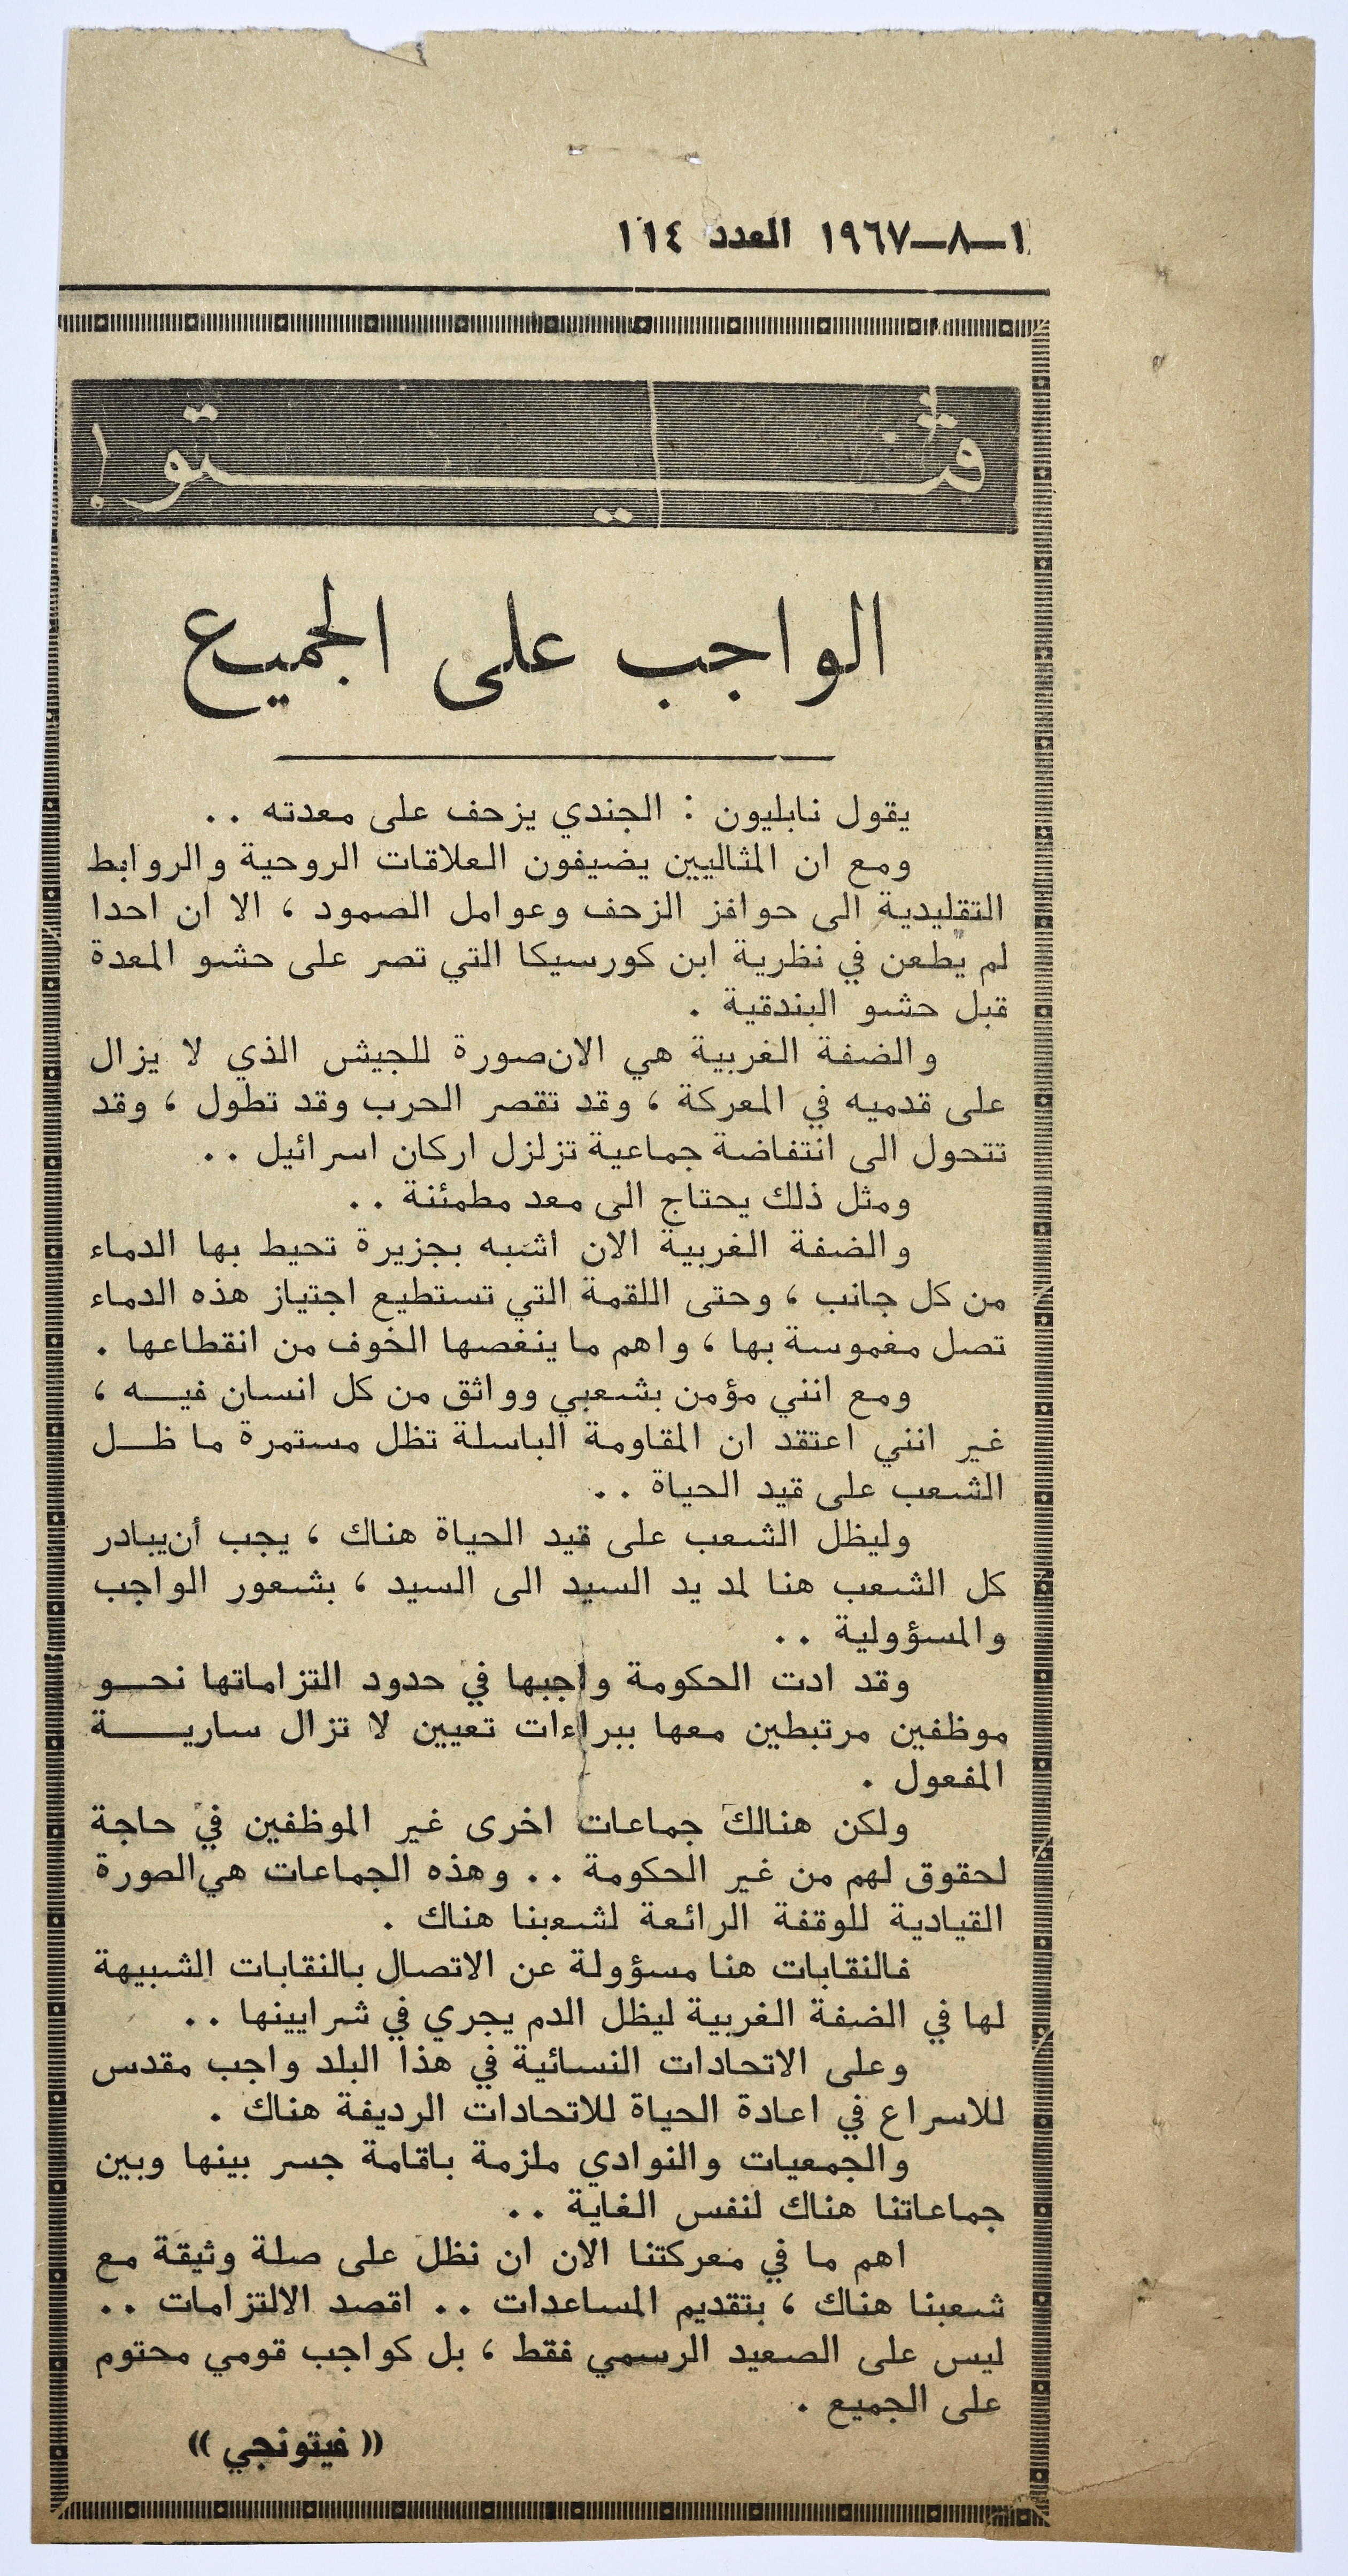 ١-٨-١٩٦٧ العدد ١١٤
ڤيتو !
الواجب على الجميع
يقول نابليون : الجندي يزحف على معدته ..
ومع ان المثاليين يضيفون العلاقات الروحية والروابط
التقليدية الى حوافز الزحف وعوامل الصمود ، الا ان احدا
لم يطعن في نظرية ابن كورسيكا التي تصر على حشو المعدة
قبل حشو البندقية .
والضفة الغربية هي الان صورة للجيش الذي لا يزال
على قدميه في المعركة ، وقد تقصر الحرب وقد تطول ، وقد
تتحول الى انتفاضة جماعية تزلزل اركان اسرائيل ..
ومثل ذلك يحتاج الى معد مطمئنة ..
والضفة الغربية الان اشبه بجزيرة تحيط بها الدماء
من كل جانب ، وحتى اللقمة التي تستطيع اجتياز هذه الدماء
تصل مغموسة بها ، واهم ما ينغصها الخوف من انقطاعها .
ومع انني مؤمن بشعبي وواثق من كل انسان فيــه ،
غير انني اعتقد ان المقاومة الباسلة تظل مستمرة ما ظــل
الشعب على قيد الحياة ..
وليظل الشعب على قيد الحياة هناك ، يجب أن يبادر
كل الشعب هنا لمد يد السيد الى السيد ، بشعور الواجب
والمسؤولية ..
وقد ادت الحكومة واجبها في حدود التزاماتها نحــو
موظفين مرتبطين معها ببراءات تعيين لا تزال ساريـــة
المفعول .
ولكن هنالك جماعات اخرى غير الموظفين في حاجة
لحقوق لهم من غير الحكومة .. وهذه الجماعات هي الصورة
القيادية للوقفة الرائعة لشعبنا هناك .
فالنقابات هنا مسؤولة عن الاتصال بالنقابات الشبيهة
لها في الضفة الغربية ليظل الدم يجري في شرايينها ..
وعلى الاتحادات النسائية في هذا البلد واجب مقدس
للاسراع في اعادة الحياة للاتحادات الرديفة هناك .
والجمعيات والنوادي ملزمة باقامة جسر بينها وبين
جماعاتنا هناك لنفس الغاية ..
اهم ما في معركتنا الان ان نظل على صلة وثيقة مع
شعبنا هناك ، بتقديم المساعدات .. اقصد الالتزامات ..
ليس على الصعيد الرسمي فقط ، بل كواجب قومي محتوم
على الجميع .
(( فيتونجي ))